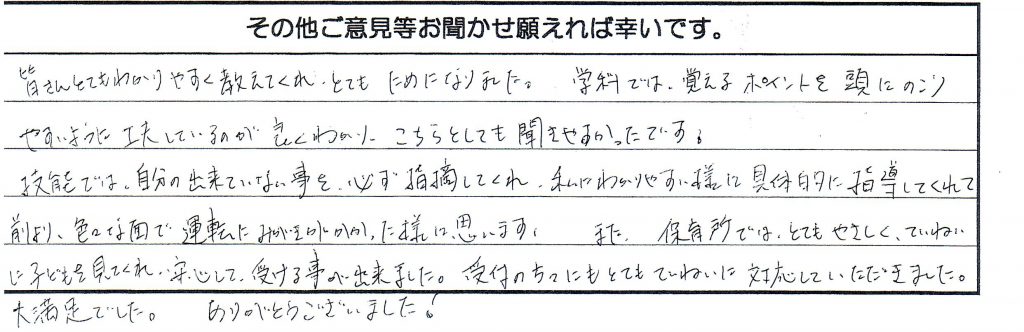 その他ご意見等お聞かせ願えれば幸いです。
皆さんとてもわかりやすく教えてくれ、とても ためになりました。 学科では、覚えるポイントを 頭にのこり
やすいように 工夫しているのが 良くわかり、こちらとしても 聞きやすかったです。
技能では、自分の出来ていない事を、必ず 指摘してくれ、私にわかりやすい様に 具体的に 指導してくれて
前より、色々な面で 運転に みがきがかかった様に思います。 また、保育所では、とてもやさしく、ていねい
に子どもを見てくれ、安心して、受ける事が出来ました。受付の方々にもとてもていねいに 対応していただきました。
大満足でした。 ありがとうございました！